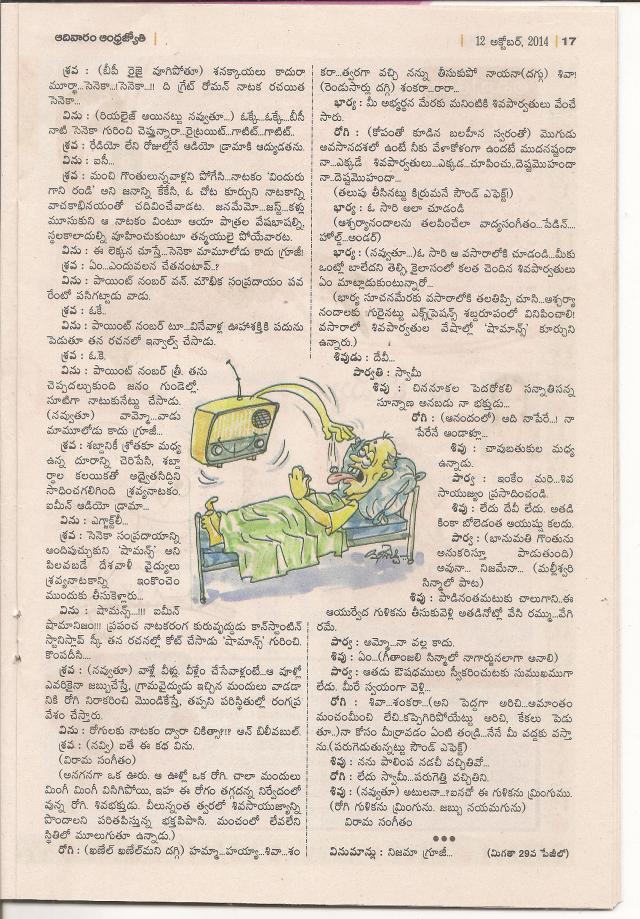 ఆదివారం ఆంధ్రజ్యోతి
12 అక్టోబర్, 2014 17
శ్రవ : (బీపీ రైజై వూగిపోతూ) శనక్కాయలు కాదురా
మూర్ఖా...సెనెకా...!సెనెకా..!! ది గ్రేట్ రోమన్ నాటక రచయిత
సెనెకా...
విను : (రియలైజ్ అయినట్టు నవ్వుతూ...) ఓక్కే...ఓక్కే...బీసీ
నాటి సెనెకా గురించి చెప్తున్నారా...రైట్రయిట్...గాటిట్...గాటిట్..
శ్రవ : రేడియో లేని రోజుల్లోనే ఆడియో డ్రామాకి ఆద్యుడతను.
విను : ఐసీ...
శ్రవ : మంచి గొంతులున్నవాళ్లని పోగేసి...నాటకం 'విందురు
గాని రండి' అని జనాన్ని కేకేసి, ఓ చోట కూర్చుని నాటకాన్ని
వాచకాభినయంతో చదివించేవాడట. జనమేమో...జస్ట్...కళ్లు
మూసుకుని ఆ నాటకం వింటూ ఆయా పాత్రల వేషభాషల్నీ,
స్థలకాలాదుల్నీ వూహించుకుంటూ తన్మయులై పోయేవారట.
విను : ఈ లెక్కన చూస్తే...సెనెకా మామూలోడు కాదు గ్రూజీ!
శ్రవ : ఏం...ఎందువలన చేతనంటావ్..?
విను : పాయింట్ నంబర్ వన్. మౌఖిక సంప్రదాయం పవ
రేంటో పసిగట్టాడు వాడు.
శ్రవ : ఓకే..
విను : పాయింట్ నంబర్ టూ...వినేవాళ్ల ఊహాశక్తికి పదును
పెడుతూ తన రచనలో ఇన్వాల్వ్ చేసాడు.
శ్రవ : ఓ.కె.
విను : పాయింట్ నంబర్ త్రీ. తను
చెప్పదల్చుకుంది జనం గుండెల్లో
సూటిగా నాటుకునేట్టు చేసాడు.
(నవ్వుతూ) వామ్మో...వాడు
మామూలోడు కాదు గ్రూజీ...
శ్రవ : శబ్దానికీ శ్రోతకూ మధ్య
ఉన్న దూరాన్ని చెరిపేసి, శబ్దా
ర్థాల కలయికతో అద్వైతసిద్ధిని
సాధించగలిగింది శ్రవ్యనాటకం.
ఐమీన్ ఆడియో డ్రామా...
విను : ఎగ్జాక్ట్‌లీ...
శ్రవ : సెనెకా సంప్రదాయాన్ని
అందిపుచ్చుకుని 'షామన్స్' అని
పిలవబడే దేశవాళీ వైద్యులు
శ్రవ్యనాటకాన్ని ఇంకొంచెం
ముందుకు తీసుకెళ్లారు...
విను : షామన్స్...!!! ఐమీన్
షామానిజం!!! ప్రపంచ నాటకరంగ కురువృద్ధుడు కాన్‌స్టాంటిన్
స్టానిస్లావ్ స్కీ తన రచనల్లో కోట్ చేసాడు 'షామాన్స్' గురించి.
కొంపదీసి....
శ్రవ : (నవ్వుతూ) వాళ్లే వీళ్లు. వీళ్లేం చేసేవాళ్లంటే...ఆ వూళ్లో
ఎవరికైనా జబ్బుచేస్తే, గ్రామవైద్యుడు ఇచ్చిన మందులు వాడడా
నికి రోగి నిరాకరించి మొండికేస్తే, తప్పని పరిస్థితుల్లో రంగప్ర
వేశం చేస్తారు.
విను : రోగులకు నాటకం ద్వారా చికిత్సా?!? ఆన్ బిలీవబుల్.
శ్రవ : (నవ్వి) ఐతే ఈ కథ విను.
(విరామ సంగీతం)
(అనగనగా ఒక ఊరు. ఆ ఊళ్లో ఒక రోగి. చాలా మందులు
మింగీ మింగీ విసిగిపోయి, ఇహ ఈ రోగం తగ్గదన్న నిర్వేదంలో
వున్న రోగి. శివభక్తుడు. వీలున్నంత త్వరలో శివసాయుజ్యాన్ని
పొందాలని పరితపిస్తున్న భక్తపిపాసి. మంచంలో లేవలేని
స్థితిలో మూలుగుతూ ఉన్నాడు.)
రోగి : (ఖణేల్ ఖణేల్‌మని దగ్గి) హమ్మా...హయ్యా...శివా...శం
కరా...త్వరగా వచ్చి నన్ను తీసుకుపో నాయనా(దగ్గు) శివా!
(రెండుసార్లు దగ్గి) శంకరా...రారా...
భార్య : మీ అభ్యర్థన మేరకు మనింటికి శివపార్వతులు వేంచే
సారు.
రోగి : (కోపంతో కూడిన బలహీన స్వరంతో) మొగుడు
అవసానదశలో ఉంటే నీకు వేళాకోళంగా ఉందటే ముదనష్టందా
నా...ఎక్కడే శివపార్వతులు...ఎక్కడ...చూపించు..దెష్టమొహందా
నా..దెష్టమొహందా...
(తలుపు తీసినట్టు కిర్రుమనే సౌండ్ ఎఫెక్ట్!)
భార్య : ఓ సారి అలా చూడండి
(ఆశ్చర్యానందాలను తలపించేలా వాద్యసంగీతం...ఫేడిన్...
హోల్డ్...అండర్)
భార్య: (నవ్వుతూ...)ఓ సారి ఆ వసారాలోకి చూడండి...మీకు
ఒంట్లో బాలేదని తెల్సి కైలాసంలో కలత చెందిన శివపార్వతులు
ఏం మాట్లాడుకుంటున్నారో...
(భార్య సూచనమేరకు వసారాలోకి తలతిప్పి చూసి...ఆశ్చర్యా
నందాలకు గురైనట్టు ఎక్స్‌ప్రెషన్స్ శబ్దరూపంలో వినిపించాలి!
వసారాలో శివపార్వతుల వేషాల్లో 'షామాన్స్' కూర్చుని
ఉన్నారు.)
శివుడు : దేవీ...
పార్వతి : స్వామీ
శివు : చిననూకల పెదరోకలి సన్నాతిసన్న
సూన్నాణ అనబడు నా భక్తుడు...
రోగి : (ఆనందంలో) ఆది నాపేరే...! నా
పేరేనే ఆండాళ్లూ...
శివు : చావుబతుకుల మధ్య
ఉన్నాడు.
పార్వ : ఇంకేం మరి...శివ
సాయుజ్యం ప్రసాదించండి.
శివు : లేదు దేవీ లేదు. అతడి
కింకా బోలెడంత ఆయుష్షు కలదు.
పార్వ : (భానుమతి గొంతును
అనుకరిస్తూ పాడుతుంది)
అవునా... నిజమేనా... (మల్లీశ్వరి
సిన్మాలో పాట)
శివు : పాడినంతమటుకు చాలుగానీ..ఈ
ఆయుర్వేద గుళికను తీసుకువెళ్లి అతడినోట్లో వేసి రమ్ము...వేగి
రమే.
పార్వ : అమ్మో...నా వల్ల కాదు.
శివు : ఏం...(గీతాంజలి సిన్మాలో నాగార్జునలాగా అనాలి)
పార్వ : ఆతడు ఔషధములు స్వీకరించుటకు సుముఖముగా
లేడు. మీరే స్వయంగా వెళ్లి...
రోగి : శివా...శంకరా...(అని పెద్దగా అరిచి...అమాంతం
మంచంమీంచి లేచి..కప్పెగిరిపోయేట్టు అరిచి, కేకలు పెడు
తూ..)నా కోసం మీర్రావడం ఏంటి తండ్రి...నేనే మీ వద్దకు వస్తా
ను.(పరుగెడుతున్నట్టు సౌండ్ ఎఫెక్ట్)
శివు : నను పాలింప నడచీ వచ్చితివో...
రోగి : లేదు స్వామీ...పరుగెత్తి వచ్చితిని.
శివు : (నవ్వుతూ) అటులనా..?ఐనచో ఈ గుళికను మ్రింగుము.
(రోగి గుళికను మ్రింగును. జబ్బు నయమగును)
విరామ సంగీతం
●●●
వినుమాన్లు : నిజమా గ్రూజీ... (మిగతా 29వ పేజీలో)